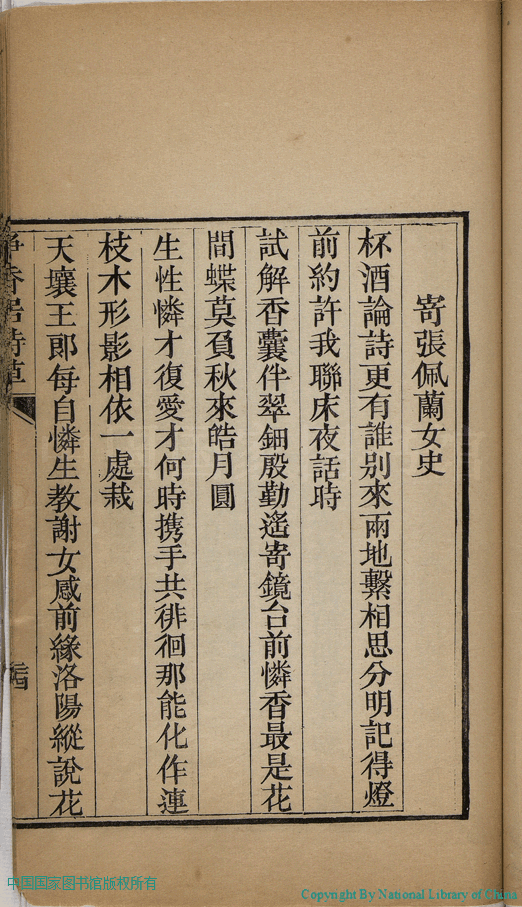 寄張佩蘭女史
杯酒論詩更有誰別來兩地繫相思分明記得燈
前約許我聯床夜話時
試解香囊伴翠鈿殷勤遙寄鏡台前憐香最是花
間蝶莫負秋來皓月圓
生性憐才復愛才何時携手共徘徊那能化作連
枝木形影相依一處栽
天壤王郎每自憐生教謝女感前緣洛陽縱說花
香居詩草
中国国家图书馆版权所有
Copyright By National Library of China